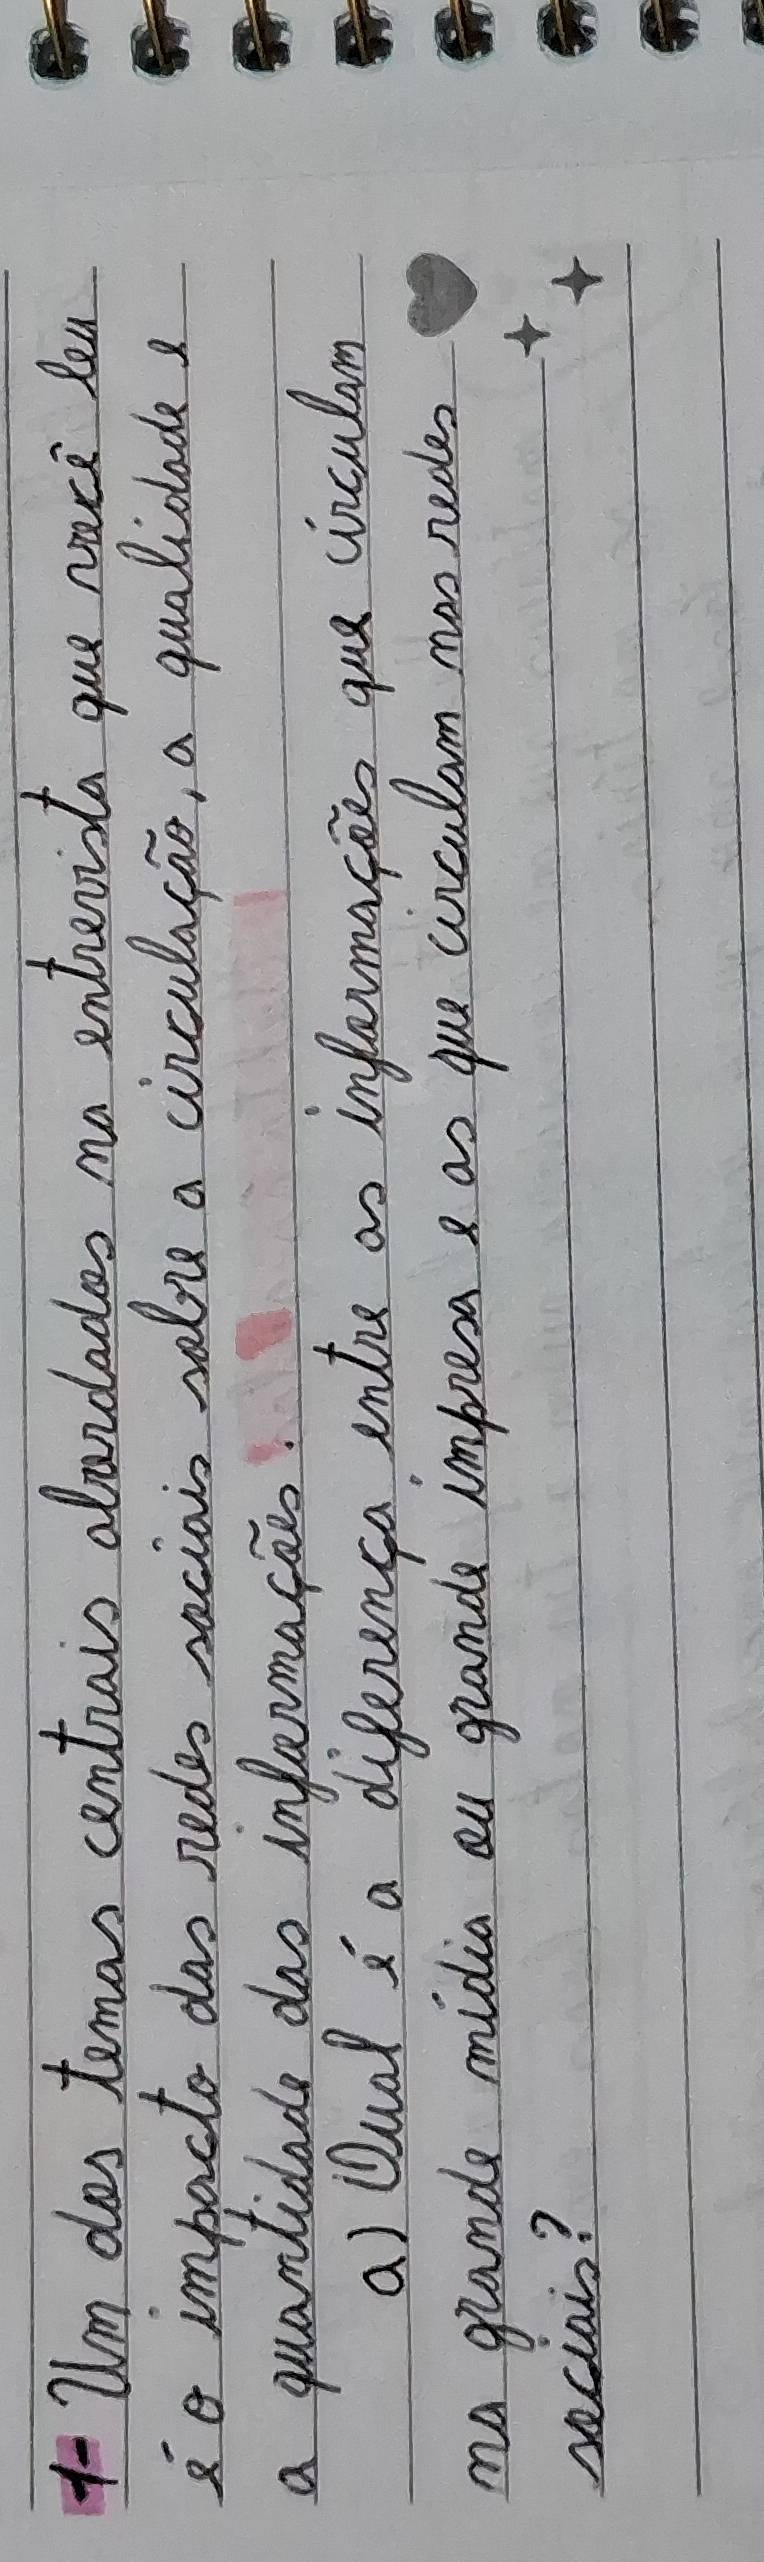 1- Um dos temas centrais abordados na entrevista que você leu
é o impacto das redes sociais sobre a circulação, a qualidade e
a quantidade das informações.
a) Qual é a diferença entre as informações que circulam
na grande mídia ou grande impresa e as que circulam nas redes
sociais?